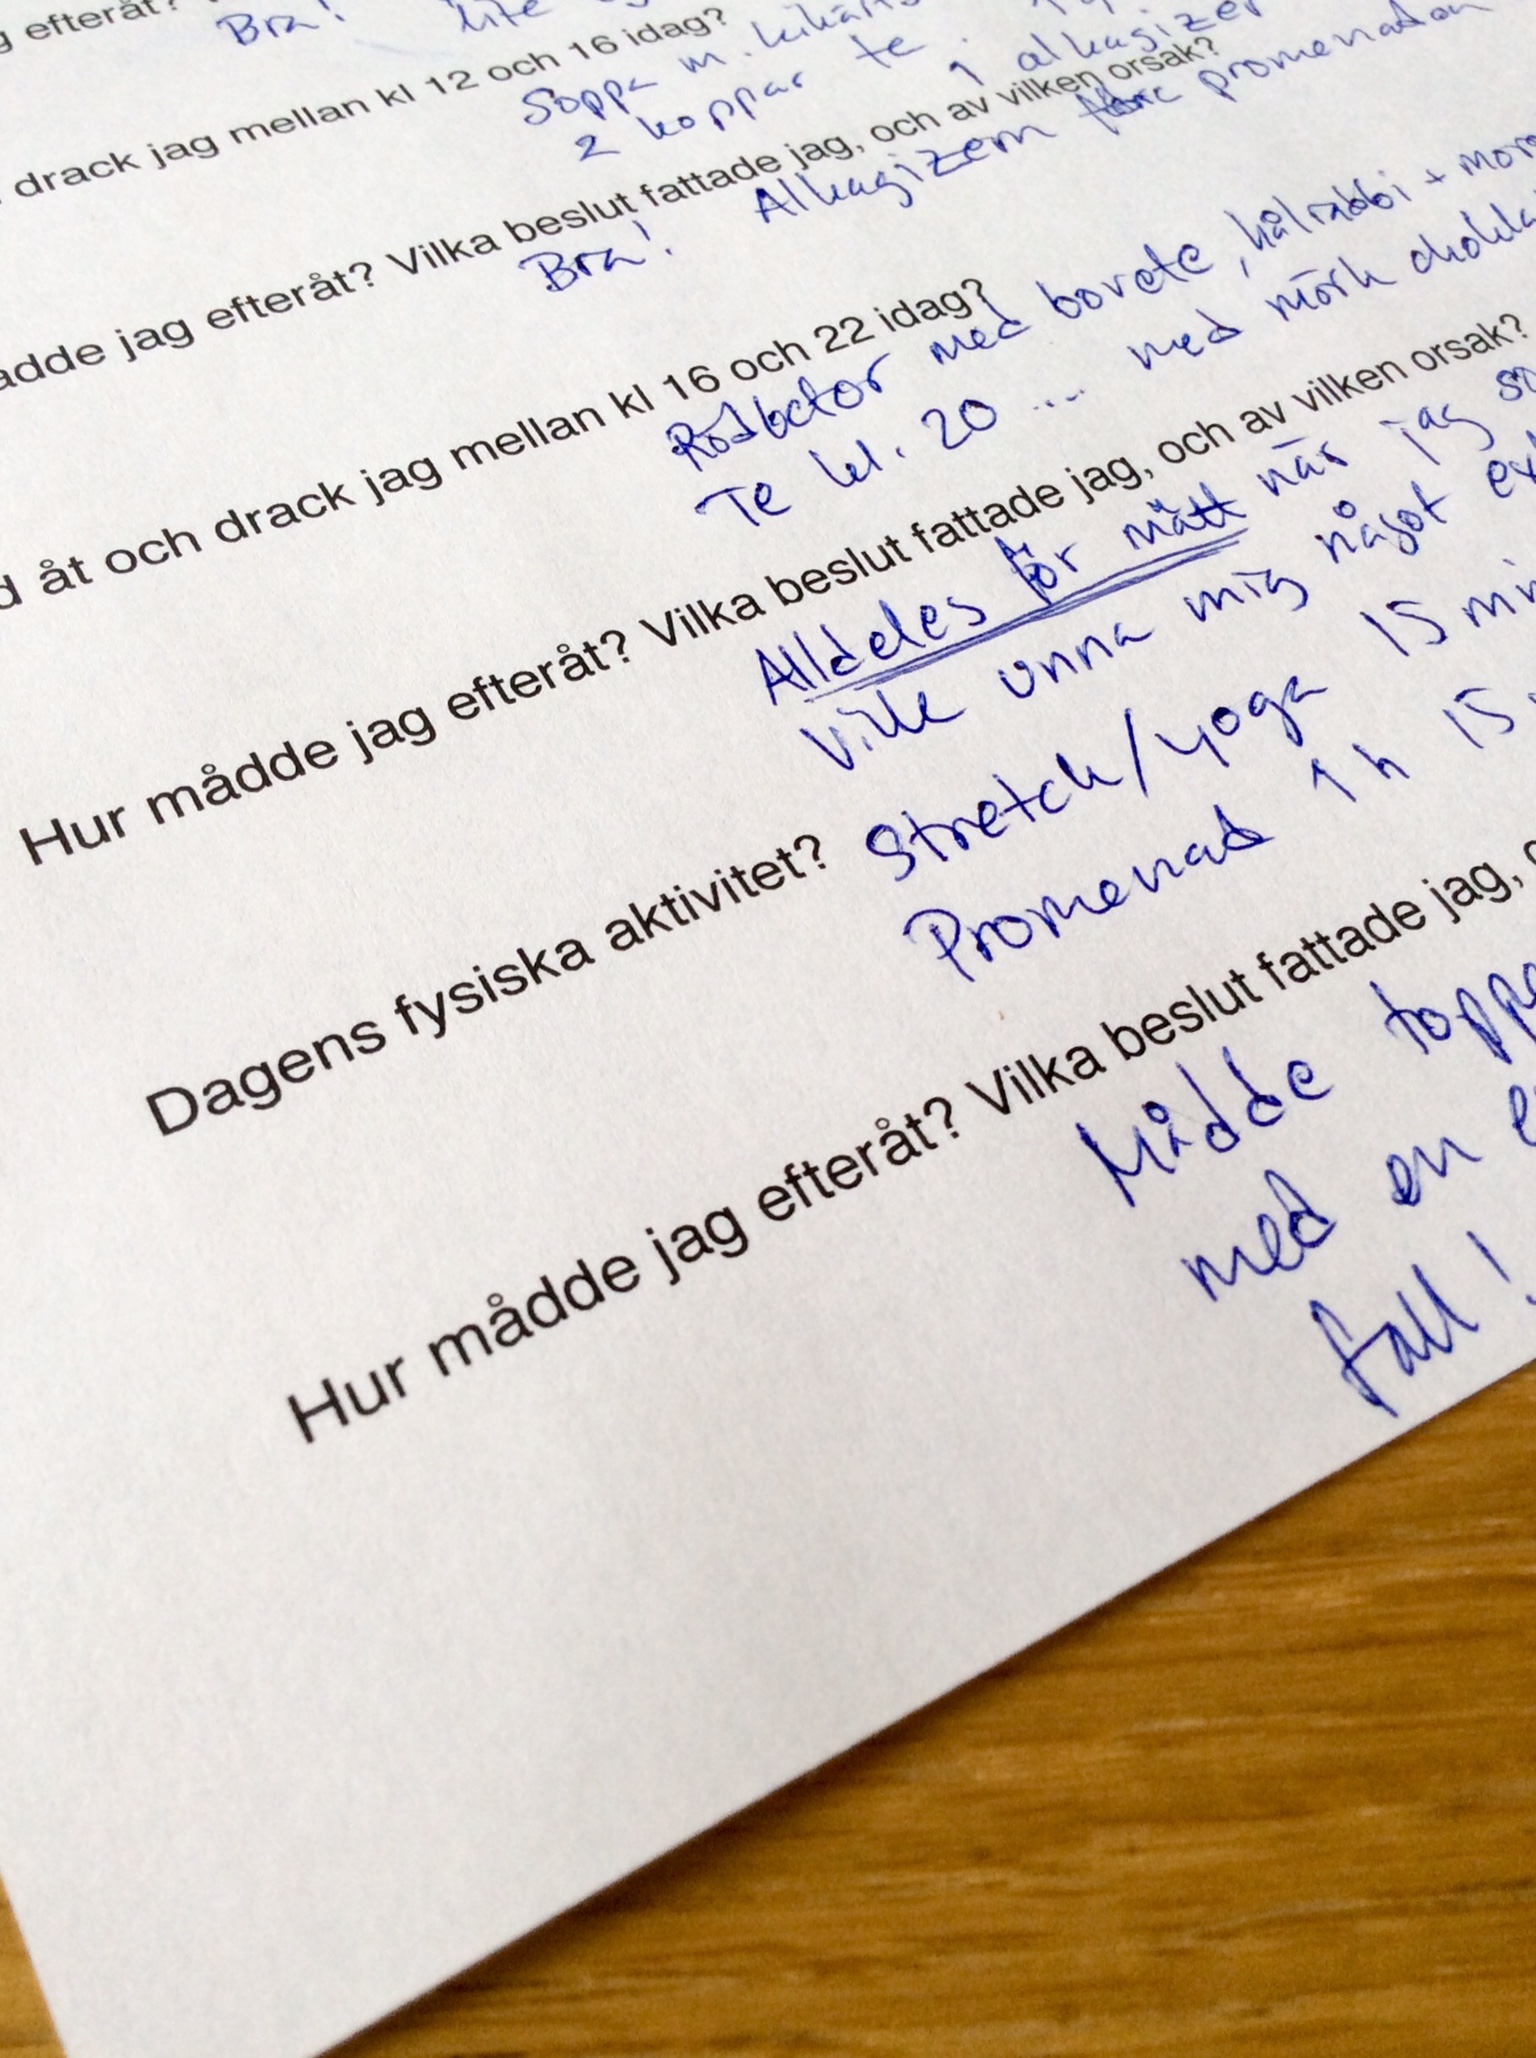 efteråt?
Bra! lite
drack jag mellan kl 12 och 16 idag?
Soppa m.
2 koppar te. 1 alkagizer
jag efteråt? Vilka beslut fattade jag, och av vilken orsak?
Bra! Alkagizern före promenaden
åt och drack jag mellan kl 16 och 22 idag?
Rödbetor med bovete, kålrabbi +
Te kl. 20 .... med mörk
Hur mådde jag efteråt? Vilka beslut fattade jag, och av vilken orsak?
Alldeles för mätt när jag
Ville unna mig något
Dagens fysiska aktivitet? Stretch/yoga 15 min
Promenad 1 h 15
Hur mådde jag efteråt? Vilka beslut fattade jag,
Mådde
med en
fall!